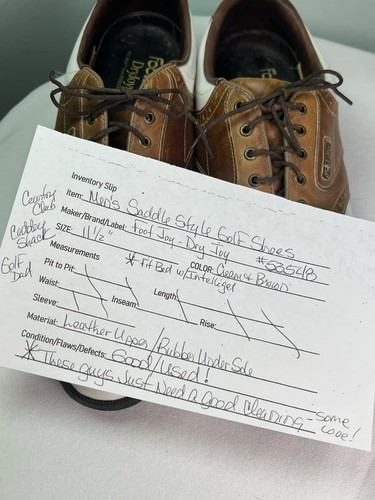 FootJoy
DryJoys
Inventory Slip
Item: Men's Saddle Style Golf Shoes
Maker/Brand/Label: Foot Joy - Dry Joy
SIZE: 11 1/2" #53548
Measurements * Fit Bed w/ Intelligel COLOR: Cream & Brown
Pit to Pit:
Waist: Inseam: Length: Rise:
Sleeve:
Material: Leather Upper / Rubber Under Sole
Condition/Flaws/Defects: Good/Used!
* These guys Just Need a Good Cleaning - some love!
Country Club
Caddy Shack
Golf Dad